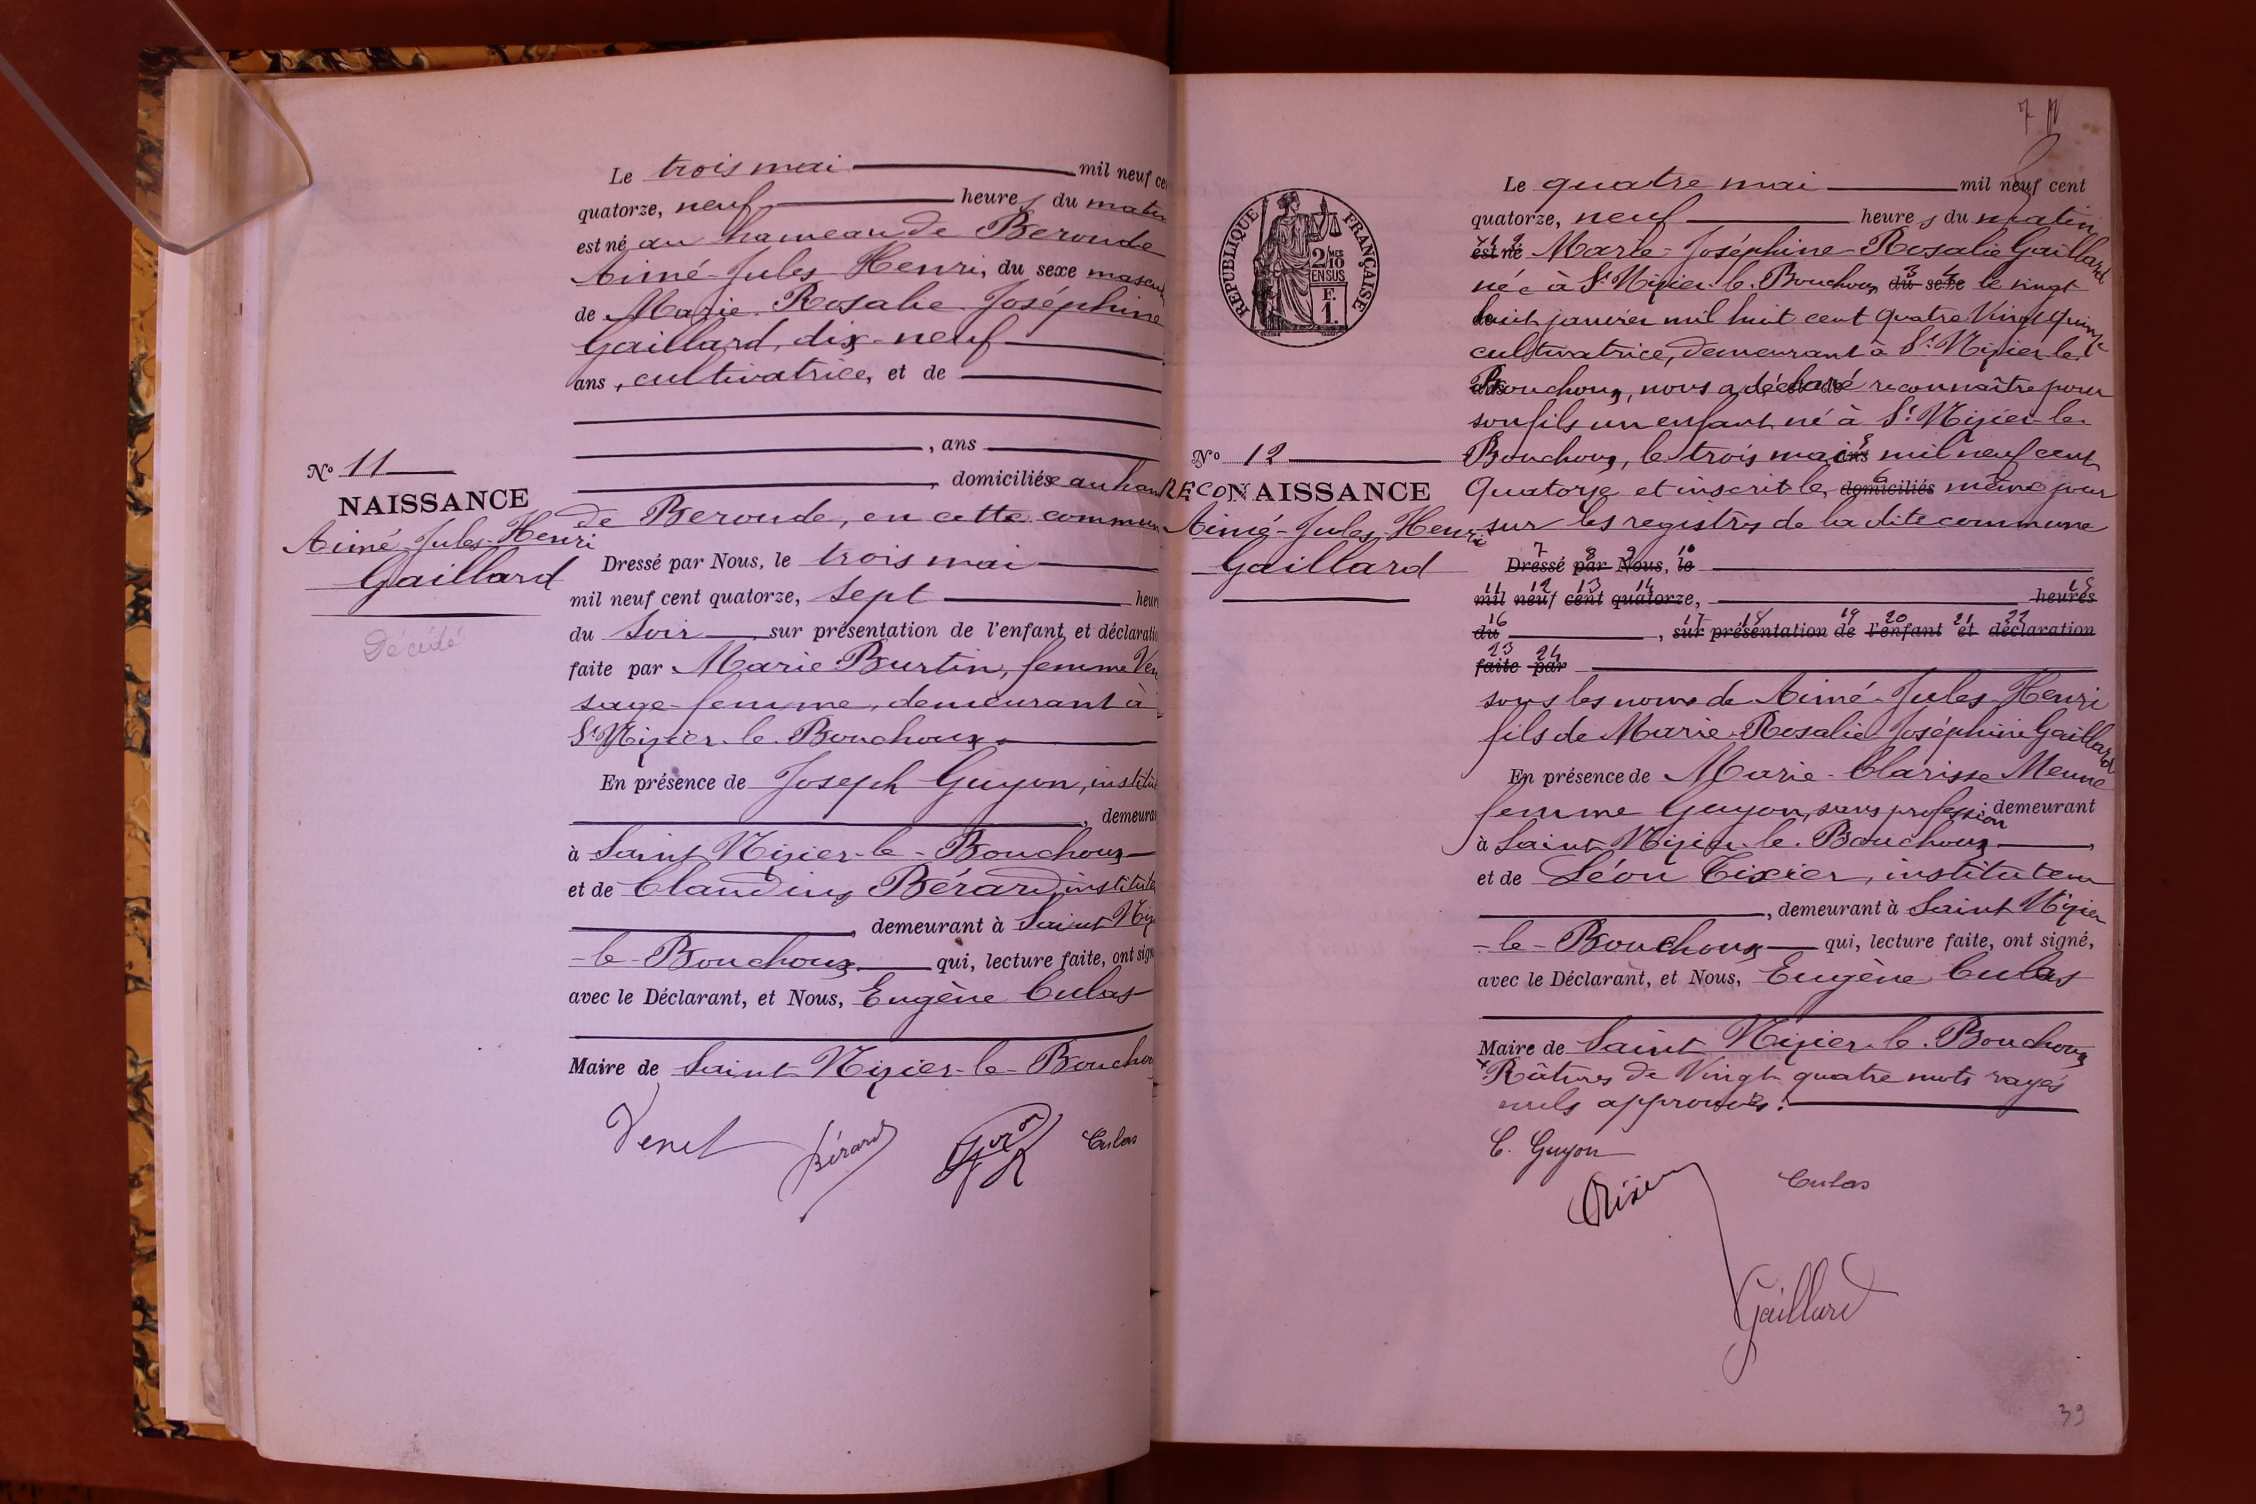 Le trois mai mil neuf cen
quatorze, neuf heures du matin
est né au hameau de Beroude
Aimé-Jules Henri, du sexe mascul
de Marie Rosalie Joséphine
Gaillard, dix-neuf
ans, cultivatrice, et de
, ans
, domiciliée au ham
de Beroude, en cette commun
Dressé par Nous, le trois mai
mil neuf cent quatorze, sept heur
du soir, sur présentation de l'enfant et déclaratio
faite par Marie Burtin, femme Ven
sage-femme, demeurant à
St Nizier-le-Bouchoux
En présence de Joseph Guyon, institut
, demeuran
à Saint Nizier-le-Bouchoux
et de Claudius Bérard, institute
, demeurant à Saint Niz
-le-Bouchoux qui, lecture faite, ont sign
avec le Déclarant, et Nous, Eugène Culas
Maire de Saint Nizier-le-Bouchou
Venet Bérard Culas
No 11
NAISSANCE
Aimé-Jules-Henri
Gaillard
Décédé
7
REPUBLIQUE FRANÇAISE
2/10
EN SUS
F.
1.
No 12
RECONNAISSANCE
Aimé-Jules Henri
Gaillard
Le quatre mai mil neuf cent
quatorze, neuf heures du matin
1 2
est né Marie-Joséphine-Rosalie Gaillard
née à St Nizier-le-Bouchoux du sexe le vingt
3 4
huit janvier mil huit cent quatre vingt quinze
cultivatrice, demeurant à St Nizier-le
Bouchoux, nous a déclaré reconnaître pour
son fils un enfant né à St Nizier-le
Bouchoux, le trois mai ans mil neuf cent
5
quatorze et inscrit le domiciliés même jour
6
sur les registres de la dite commune
7 8 9 10
Dressé par Nous, le
11 12 13 14 15
mil neuf cent quatorze, heures
16 17 18 19 20 21 22
du , sur présentation de l'enfant et déclaration
23 24
faite par
sous les noms de Aimé-Jules-Henri
fils de Marie-Rosalie-Joséphine Gaillard
En présence de Marie-Clarisse Meune
femme Guyon, sans profession demeurant
à Saint Nizier-le-Bouchoux
et de Léon Tixier, instituteur
, demeurant à Saint Nizier
-le-Bouchoux qui, lecture faite, ont signé,
avec le Déclarant, et Nous, Eugène Culas
Maire de Saint Nizier-le-Bouchoux
Râtures de Vingt-quatre mots rayés
nuls approuvés.
C. Guyon
Tixier Culas
Gaillard
39